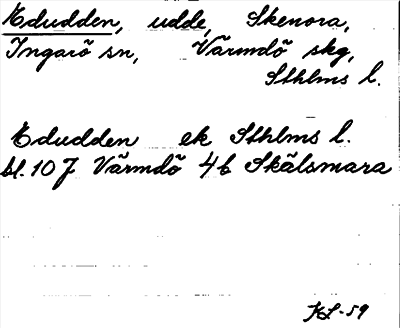 Edudden, udde, Skenora,
Ingarö sn, Värmdö skg,
Sthlms l.
Edudden ek Sthlms l.
bl. 10 J Värmdö 4b Skälsmara
KL-59